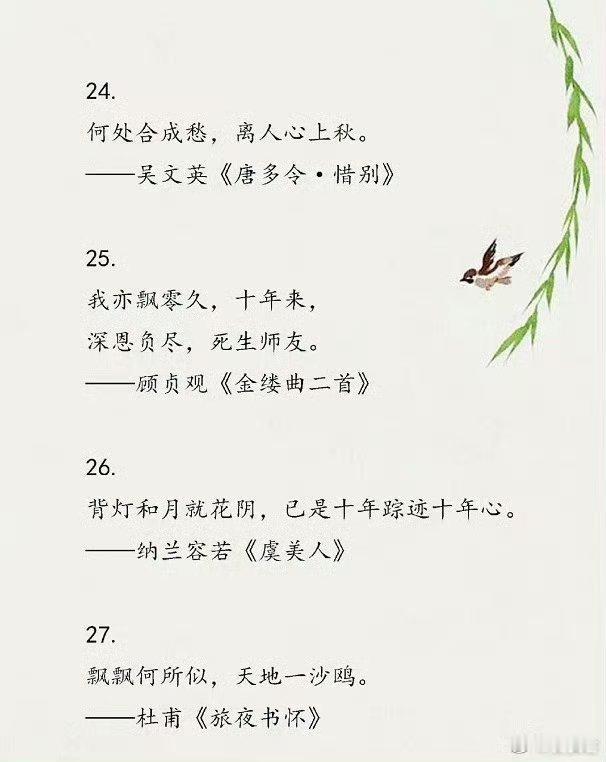 24.
何处合成愁，离人心上秋。
——吴文英《唐多令·惜别》
25.
我亦飘零久，十年来，
深恩负尽，死生师友。
——顾贞观《金缕曲二首》
26.
背灯和月就花阴，已是十年踪迹十年心。
——纳兰容若《虞美人》
27.
飘飘何所似，天地一沙鸥。
——杜甫《旅夜书怀》